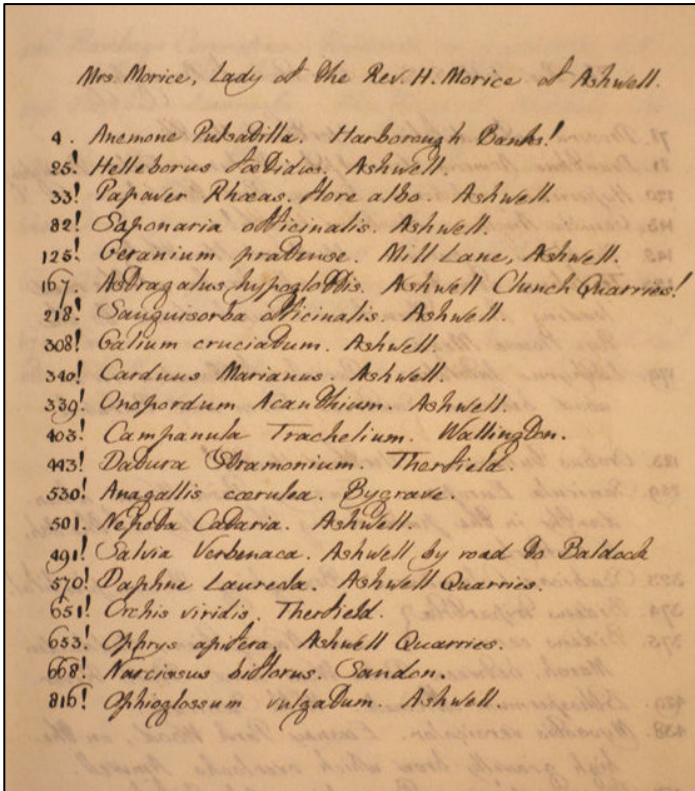 Mrs. Morice, Lady of the Rev. H. Morice of Ashwell.
4. Anemone Pulsatilla. Harborough Banks!
25! Helleborus fœtidus. Ashwell.
33! Papaver Rhœas. flore albo. Ashwell.
82! Saponaria officinalis. Ashwell.
125! Geranium pratense. Mill Lane, Ashwell.
167. Astragalus hypoglottis. Ashwell Clunch Quarries!
218! Sanguisorba officinalis. Ashwell.
308! Galium cruciatum. Ashwell.
340! Carduus Marianus. Ashwell.
339! Onopordum Acanthium. Ashwell.
403! Campanula Trachelium. Wallington.
443! Datura Stramonium. Therfield.
530! Anagallis cœrulea. Bygrave.
501. Nepeta Cataria. Ashwell.
491! Salvia Verbenaca. Ashwell by road to Baldock
570! Daphne Laureola. Ashwell Quarries.
651! Orchis viridis. Therfield.
653! Ophrys apifera, Ashwell Quarries.
668! Narcissus biflorus. Sandon.
816! Ophioglossum vulgatum. Ashwell.